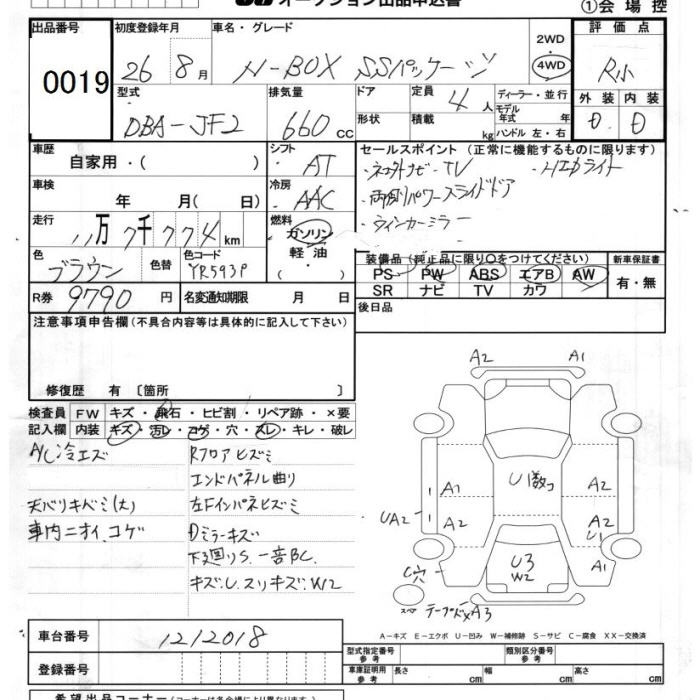 オークション出品申込書
①会場控
出品番号
0019
初度登録年月
26年 8月
車名・グレード
N-BOX SSパッケージ
2WD
4WD
評価点
R小
外装 内装
D D
型式
DBA-JF2
排気量
660 cc
ドア
形状
定員 4人
積載 kg
ディーラー・並行
モデル
年式 年
ハンドル 左・右
車歴
自家用・( )
シフト
AT
車検
年 月( 日)
冷房
AAC
走行
11万7千774km
燃料
ガソリン
軽油
( )
色
ブラウン
色替
色コード
YR593P
R券 9790円
名変通知期限 月 日
セールスポイント (正常に機能するものに限ります)
ナビ・TV ・HIDライト
両側パワースライドドア
ウィンカーミラー
装備品 (純正品に限り○をつけてください)
PS PW ABS エアB AW
SR ナビ TV カワ
新車保証書
有・無
後日品
注意事項申告欄(不具合内容等は具体的に記入して下さい)
修復歴 有 〔箇所 〕
検査員
記入欄
FW キズ・飛石・ヒビ割・リペア跡・×要
内装 キズ・汚レ・コゲ・穴・スレ・キレ・破レ
A/C冷エズ
Rフロアヒズミ
エンドパネル曲り
天バリキバミ(大)
左Fインパネヒズミ
車内ニオイ、コゲ
Dミラーキズ
下廻りS.一部C.
キズ.U.スリキズ.W2
A2 A1
A1 U1数コ A2
UA2 A2 A2
U1
U3
W2
A1
C穴
スペア テープドメ A3
A-キズ E-エクボ U-凹み W-補修跡 S-サビ C-腐食 XX-交換済
車台番号
1212018
登録番号
型式指定番号
参考
類別区分番号
参考
車庫証明用
参考
長さ cm 幅 cm 高さ cm
希望出品コーナー